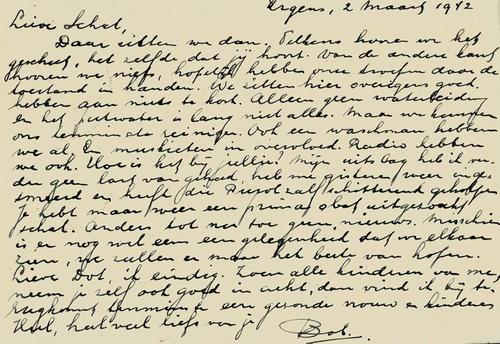 Ergens, 2 Maart 1942
Lieve Schat,
Daar zitten we dan. Telkens horen we het
geschut, het zelfde dat jij hoort. Van de andere kant
horen we niets, hopelijk hebben onze troepen daar de
toestand in handen. We zitten hier overigens goed.
hebben aan niets te kort. Alleen geen waterleiding
en het putwater is lang niet alles. Maar we kunnen
ons tenminste reinigen. Ook een waschman hebben
we al. En muskieten in overvloed. Radio hebben
we ook. Hoe is het bij jullie? Mijn uitslag heb ik
geen last van gehad, heb me gisteren weer
en heeft die zalf schitterend geholpen
Je hebt maar weer een prima stof uitgezocht
schat. Anders tot nu toe geen nieuws. Misschien
is er nog wel eens een gelegenheid dat we elkaar
zien, we zullen er maar het beste van hopen.
Lieve Dot, ik eindig. Zoen alle kinderen van me,
neem je zelf ook goed in acht, dan vind ik bij
terugkomst tenminste een gezonde vrouw en kinderen
heel veel liefs van je
Bob.